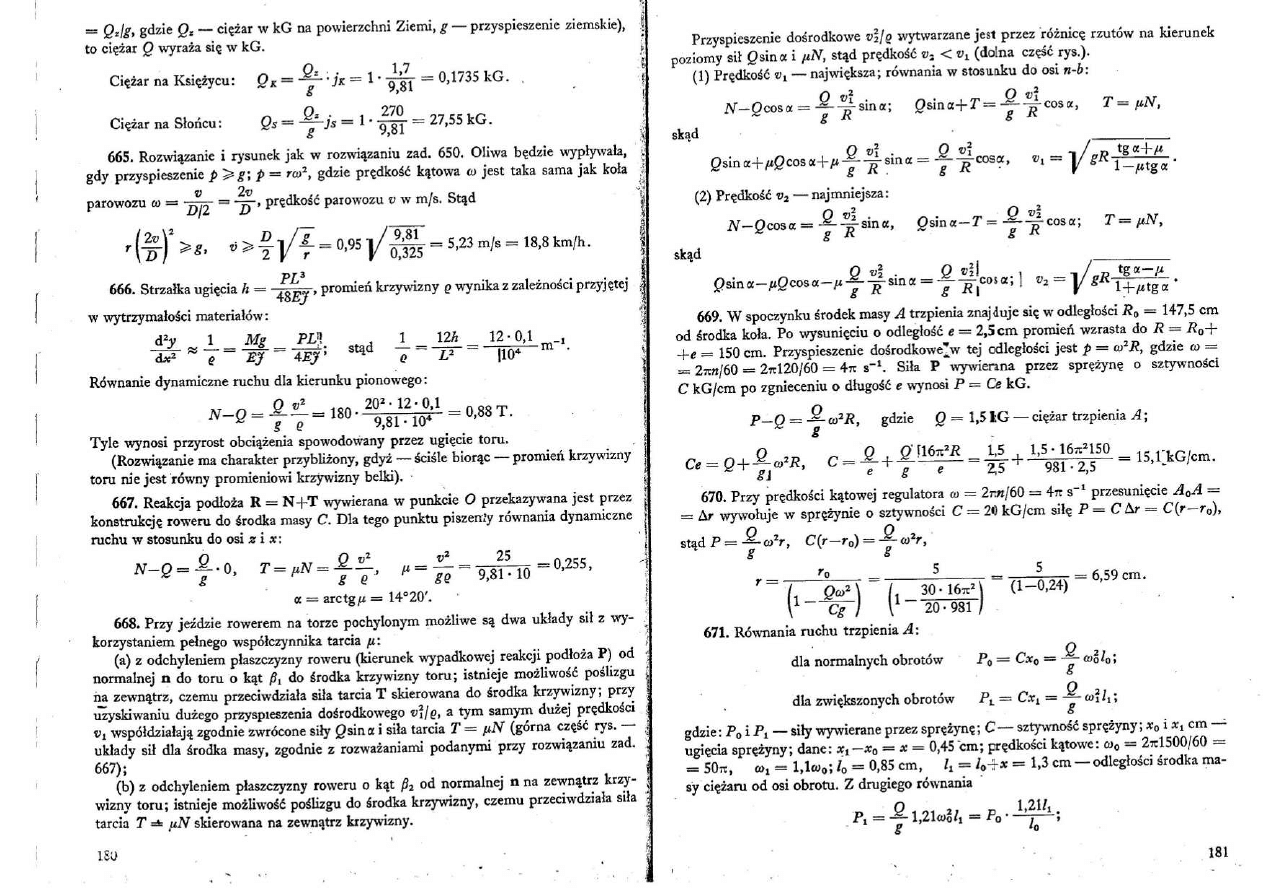 = Q_z/g, gdzie Q_z — ciężar w kG na powierzchni Ziemi, g — przyspieszenie ziemskie),
to ciężar Q wyraża się w kG.
Ciężar na Księżycu: Q_K = Q_z/g · j_K = 1 · 1,7/9,81 = 0,1735 kG.
Ciężar na Słońcu: Q_S = Q_z/g j_S = 1 · 270/9,81 = 27,55 kG.
665. Rozwiązanie i rysunek jak w rozwiązaniu zad. 650. Oliwa będzie wypływała,
gdy przyspieszenie p ⩾ g; p = rω², gdzie prędkość kątowa ω jest taka sama jak koła
parowozu ω = v/(D/2) = 2v/D, prędkość parowozu v w m/s. Stąd
r(2v/D)² ⩾ g, v ⩾ D/2 √(g/r) = 0,95 √(9,81/0,325) = 5,23 m/s = 18,8 km/h.
666. Strzałka ugięcia h = PL³/48EJ, promień krzywizny ϱ wynika z zależności przyjętej
w wytrzymałości materiałów:
d²y/dx² ≈ 1/ϱ = Mg/EJ = PL/4EJ; stąd 1/ϱ = 12h/L² = 12 · 0,1/10⁴ m⁻¹.
Równanie dynamiczne ruchu dla kierunku pionowego:
N−Q = Q/g v²/ϱ = 180 · 20² · 12 · 0,1/9,81 · 10⁴ = 0,88 T.
Tyle wynosi przyrost obciążenia spowodowany przez ugięcie toru.
(Rozwiązanie ma charakter przybliżony, gdyż — ściśle biorąc — promień krzywizny
toru nie jest równy promieniowi krzywizny belki).
667. Reakcja podłoża R = N+T wywierana w punkcie O przekazywana jest przez
konstrukcję roweru do środka masy C. Dla tego punktu piszemy równania dynamiczne
ruchu w stosunku do osi z i x:
N−Q = Q/g · 0, T = μN = Q/g v²/ϱ, μ = v²/gϱ = 25/9,81 · 10 = 0,255,
α = arctg μ = 14°20′.
668. Przy jeździe rowerem na torze pochylonym możliwe są dwa układy sił z wy-
korzystaniem pełnego współczynnika tarcia μ:
(a) z odchyleniem płaszczyzny roweru (kierunek wypadkowej reakcji podłoża P) od
normalnej n do toru o kąt β₁ do środka krzywizny toru; istnieje możliwość poślizgu
na zewnątrz, czemu przeciwdziała siła tarcia T skierowana do środka krzywizny; przy
uzyskiwaniu dużego przyspieszenia dośrodkowego v₁²/ϱ, a tym samym dużej prędkości
v₁ współdziałają zgodnie zwrócone siły Q sin α i siła tarcia T = μN (górna część rys. —
układy sił dla środka masy, zgodnie z rozważaniami podanymi przy rozwiązaniu zad.
667);
(b) z odchyleniem płaszczyzny roweru o kąt β₂ od normalnej n na zewnątrz krzy-
wizny toru; istnieje możliwość poślizgu do środka krzywizny, czemu przeciwdziała siła
tarcia T = μN skierowana na zewnątrz krzywizny.
180
Przyspieszenie dośrodkowe v₂²/ϱ wytwarzane jest przez różnicę rzutów na kierunek
poziomy sił Q sin α i μN, stąd prędkość v₂ < v₁ (dolna część rys.).
(1) Prędkość v₁ — największa; równania w stosunku do osi n-b:
N−Q cos α = Q/g v₁²/R sin α; Q sin α+T = Q/g v₁²/R cos α, T = μN,
skąd
Q sin α+μQ cos α+μ Q/g v₁²/R sin α = Q/g v₁²/R cos α, v₁ = √(gR (tg α+μ)/(1−μ tg α)).
(2) Prędkość v₂ — najmniejsza:
N−Q cos α = Q/g v₂²/R sin α, Q sin α−T = Q/g v₂²/R cos α; T = μN,
skąd
Q sin α−μQ cos α−μ Q/g v₂²/R sin α = Q/g v₂²/R cos α; v₂ = √(gR (tg α−μ)/(1+μ tg α)).
669. W spoczynku środek masy A trzpienia znajduje się w odległości R₀ = 147,5 cm
od środka koła. Po wysunięciu o odległość e = 2,5 cm promień wzrasta do R = R₀+
+e = 150 cm. Przyspieszenie dośrodkowe w tej odległości jest p = ω²R, gdzie ω =
= 2πn/60 = 2π120/60 = 4π s⁻¹. Siła P wywierana przez sprężynę o sztywności
C kG/cm po zgnieceniu o długość e wynosi P = Ce kG.
P−Q = Q/g ω²R, gdzie Q = 1,5 kG — ciężar trzpienia A;
Ce = Q + Q/g ω²R, C = Q/e + Q/g 16π²R/e = 1,5/2,5 + 1,5 · 16π²150/981 · 2,5 = 15,1 kG/cm.
670. Przy prędkości kątowej regulatora ω = 2πn/60 = 4π s⁻¹ przesunięcie A₀A =
= Δr wywołuje w sprężynie o sztywności C = 20 kG/cm siłę P = C Δr = C(r−r₀),
stąd P = Q/g ω²r, C(r−r₀) = Q/g ω²r,
r = r₀/(1 − Qω²/Cg) = 5/(1 − 30 · 16π²/20 · 981) = 5/(1−0,24) = 6,59 cm.
671. Równania ruchu trzpienia A:
dla normalnych obrotów P₀ = Cx₀ = Q/g ω₀²l₀;
dla zwiększonych obrotów P₁ = Cx₁ = Q/g ω₁²l₁;
gdzie: P₀ i P₁ — siły wywierane przez sprężynę; C — sztywność sprężyny; x₀ i x₁ cm —
ugięcia sprężyny; dane: x₁−x₀ = x = 0,45 cm; prędkości kątowe: ω₀ = 2π1500/60 =
= 50π, ω₁ = 1,1ω₀; l₀ = 0,85 cm, l₁ = l₀+x = 1,3 cm — odległości środka ma-
sy ciężaru od osi obrotu. Z drugiego równania
P₁ = Q/g 1,21ω₀²l₁ = P₀ · 1,21l₁/l₀;
181